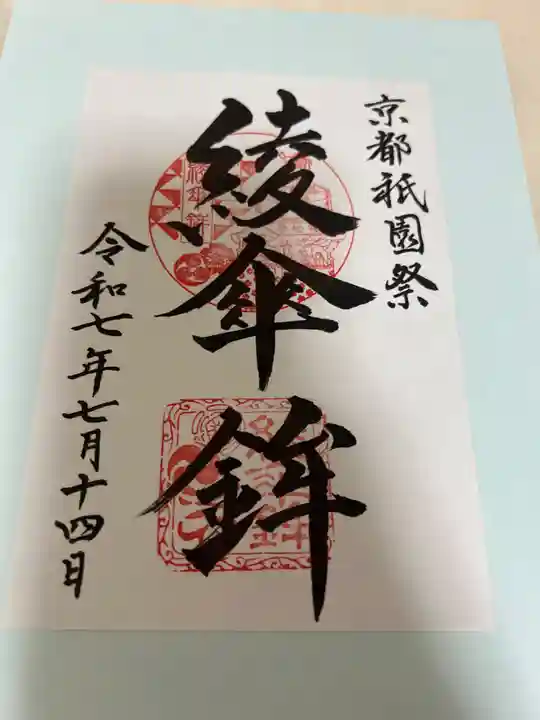 京都祇園祭
綾傘鉾
令和七年七月十四日